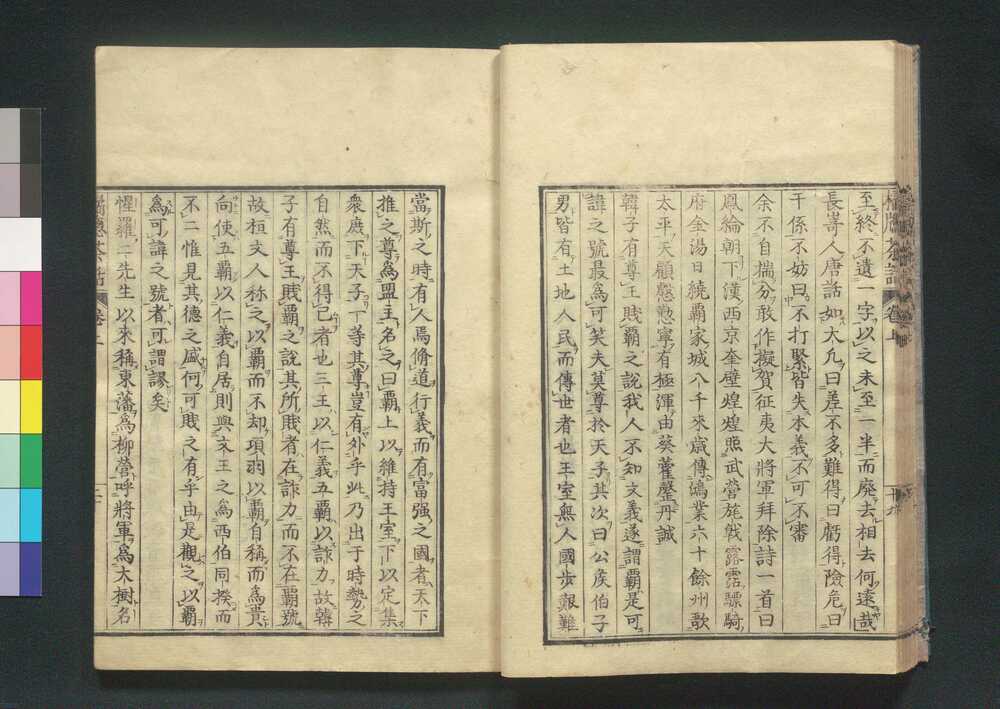 橘牕茶話 卷上 十九
至終不遺一字以之未至一半而廢去相去何遠哉
長嵜人唐話如大凢曰差不多難得曰虧得險危曰
干係不妨曰不打緊皆失本義不可不審
余不自揣分敢作擬賀征夷大將軍拜除詩一首曰
鳳綸朝下漢西京奎壁煌煌照武營旄戟露霑驃騎
府金湯日繞覇家城八千來歳傳鴻業六十餘州歌
太平天顧慇懃寧有極渾由葵藿罄丹誠
韓子有尊王賎覇之說我人不知文義遂謂覇是可
諱之號最爲可笑夫莫尊於天子其次曰公矦伯子
男皆有土地人民而傳世者也王室無人國步艱難
當斯之時有人焉脩道行義而有富强之國者天下
推之尊爲盟主名之曰覇上以維持王室下以定集
衆庶下天子一等其尊豈有外乎此乃出于時勢之
自然而不得已者也三王以仁義五覇以詐力故韓
子有尊王賎覇之說其所賎者在詐力而不在覇號
故桓文人称之以覇而不却項羽以覇自稱而爲貴
向使五覇以仁義自居則與文王之爲西伯同揆而
不二惟見其德之盛何可賎之有乎由是觀之以覇
爲可諱之號者可謂謬矣
惺羅二先生以來稱東藩爲柳營呼將軍爲大樹名